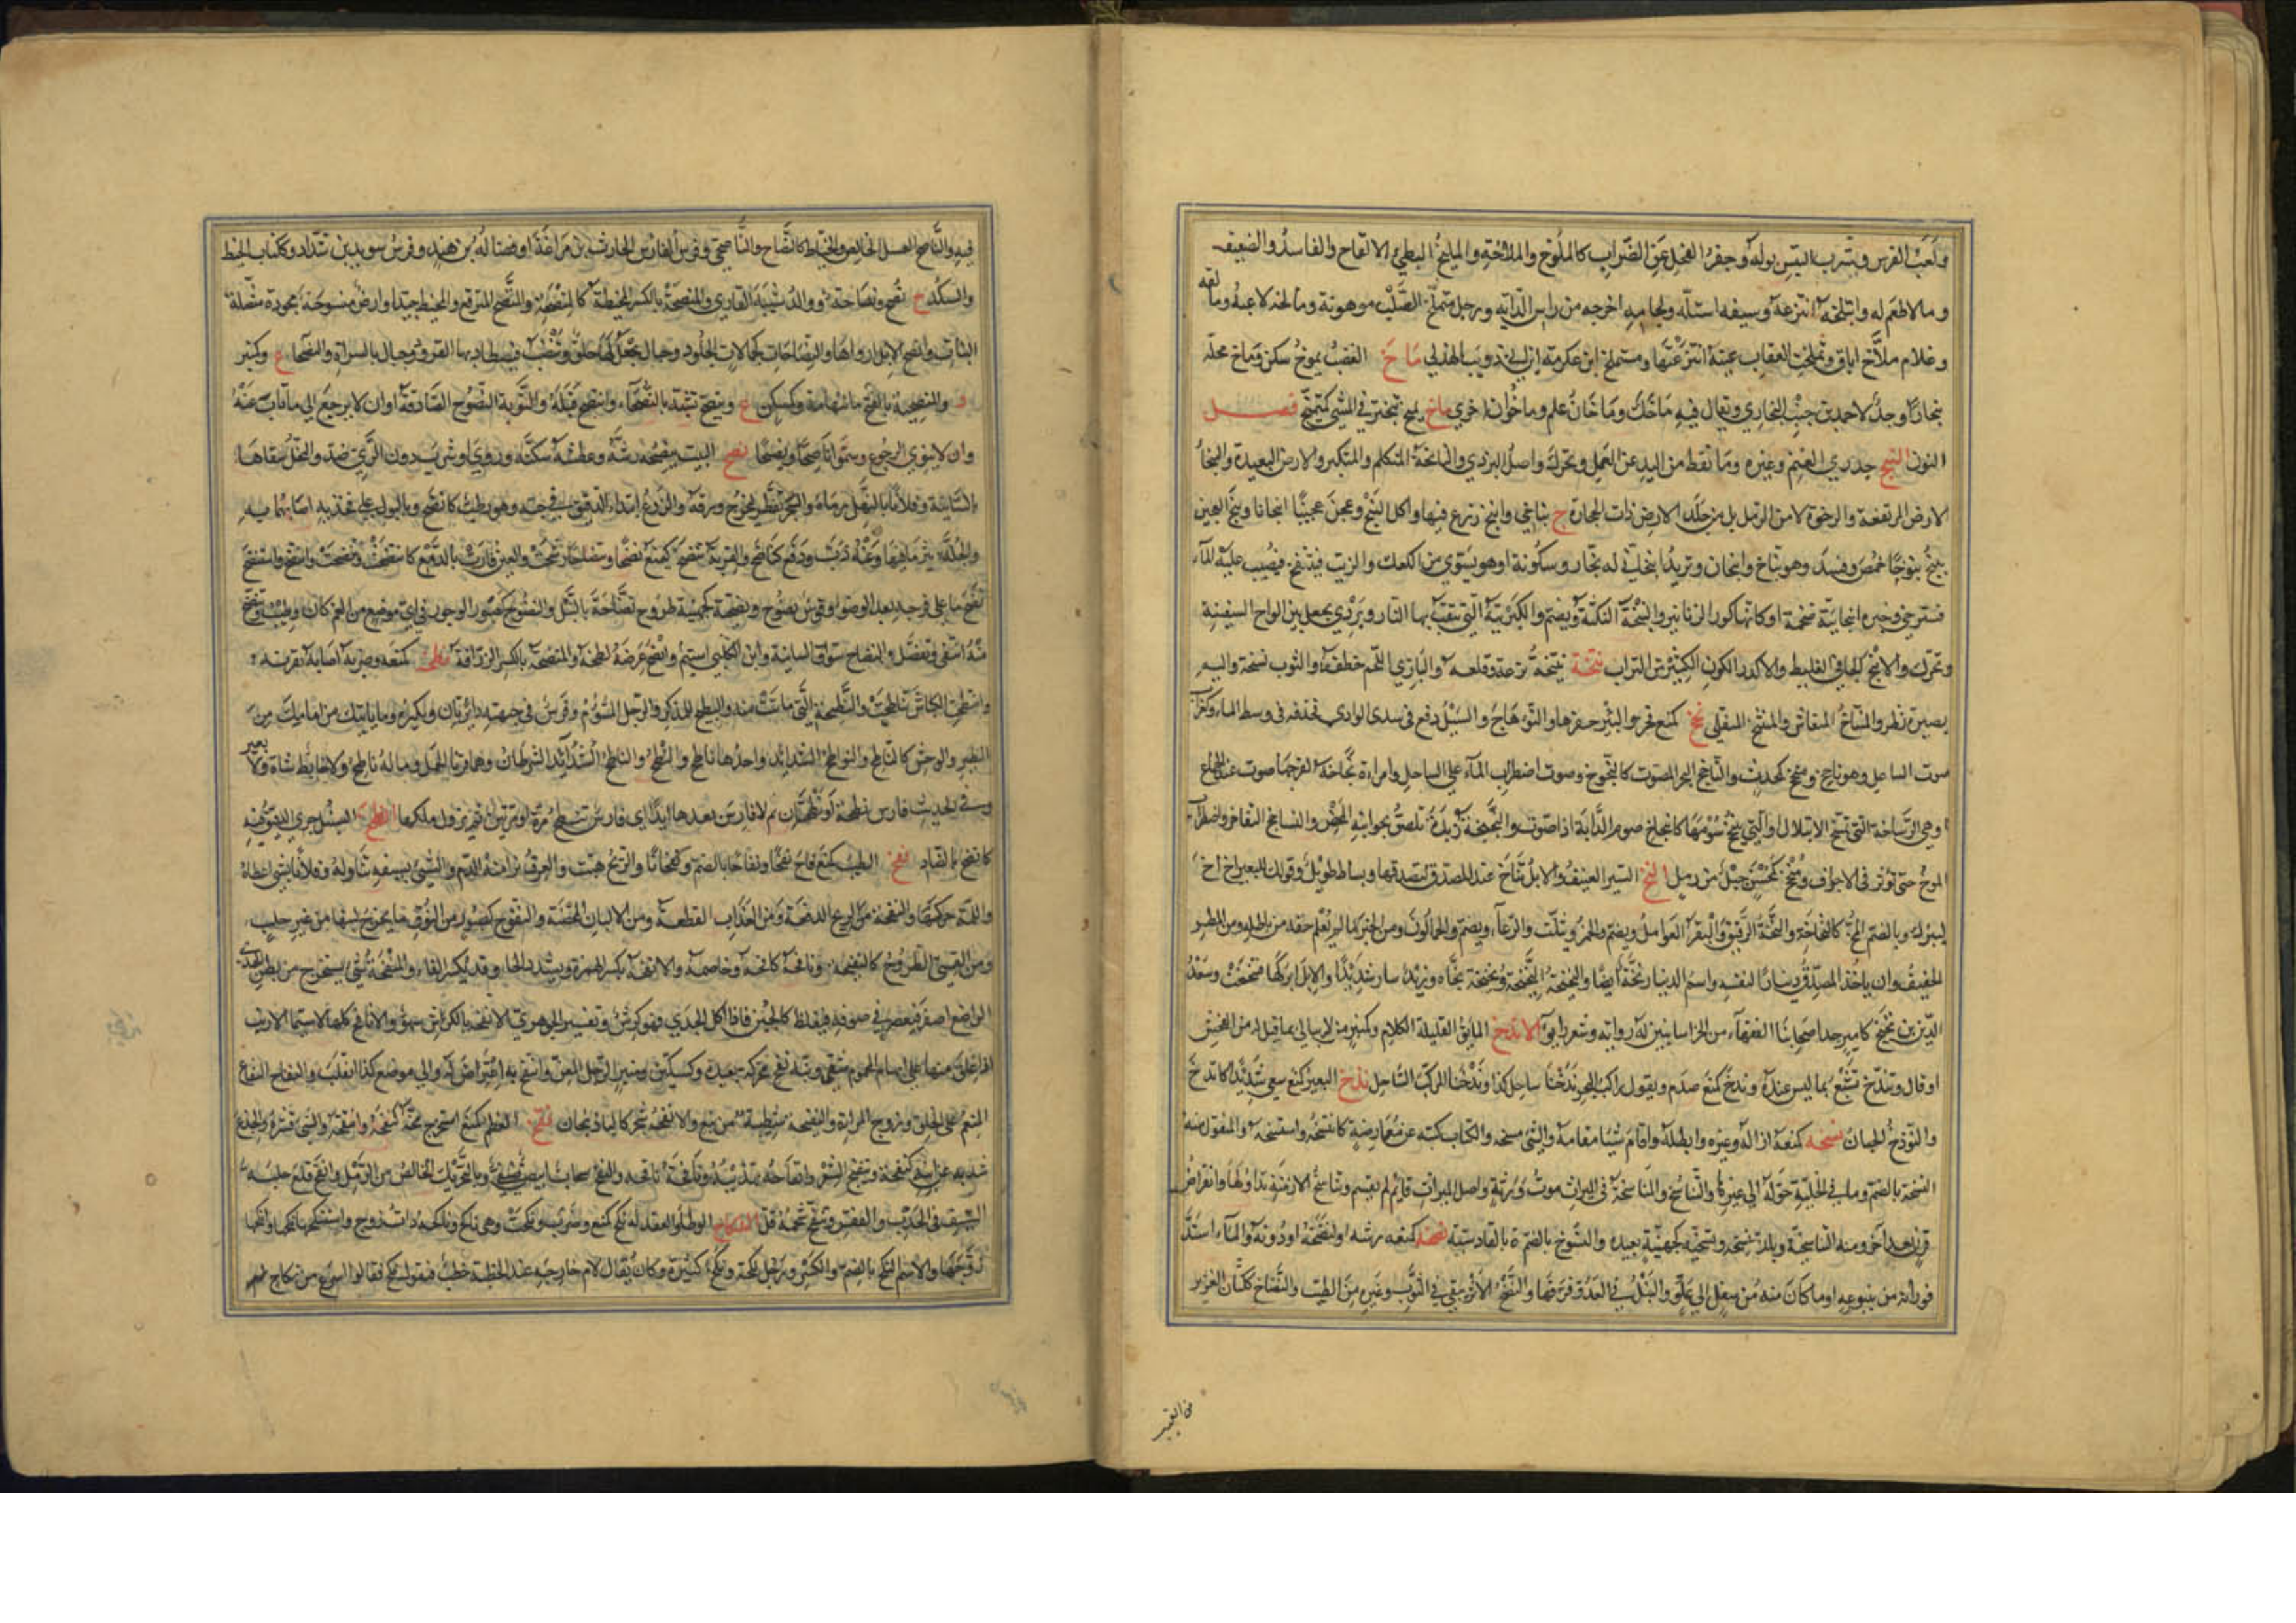 ولعب الفرس وشرب التيس بوله وجفر الفحل عن الضراب كالملوخ والملاخة والمليخ البطيء الالقاح والفاسد والضعيف
وما لا طعم له وامتلخه انتزعه وسيفه استله ولجامه اخرجه من راس الدابه ورجل متملخ الصلب موهونة ومالخه لاعبه ومالقه
وغلام ملاخ اباق وتملخت العقاب عينه انتزعتها ومستملخ ابن عكرمة ابي ذويب الهذلي ماخ الغضب يموخ سكن وماخ محلة
ببخارا وجد لاحمد بن خنب البخاري ويقال فيه ماخك وماخان علم وماخوان اخري ماخ يميخ تبختر في المشي كتميخ فصل
النون النبخ جدري الغنم وغيره وما نفط من اليد عن العمل وتحرك واصل البردي والنابخة المتكلم والمتكبر والارض البعيدة والنبخاء
الارض المرتفعة والرخوة لا من الرمل بل من جلد الارض ذات الحجارة ج نباخي وانبخ زرع فيها واكل النبخ وعجن عجينا انبخانا ونبخ العجين
ينبخ نبوخا حمض وفسد وهو نباخ وانبخان وثريد انبخاني له بخار وسكونة او هو يسوي من الكعك والزيت فينتفخ فيصب عليه الماء
فيسترخي وخبزه انبخانية ضخمة او كانها كور الزنانير والنبخة النكتة ويضم والكبريتة التي تثقب بها النار وبردي يجعل بين الواح السفينة
وتحرك والانبخ الجافي الغليظ والاكدر اللون الكثير من التراب نتخة ينتخه نزعه وقلعه والبازي اللحم خطفه والثوب نسخه واليه
بصره نظر والمنتاخ المنقاش والمنتخ المنفلي نخج كمنع فخر والبئر حفرها والنوء هاج والسيل دفع في سدي الوادي فحذفه في وسط الماء وكغراب
صوت الساعل وهو ناجخ ومنجخ كمحدث والناجخ البحر المصوت كالنجوخ وصوت اضطراب الماء علي الساحل وامراءة نجاخة لفرجها صوت عند الجماع
او هي الرشاخة التي تمسح الابتلال او التي ينجخ سؤمها كانجاخ صوم الدابة اذا صوت والنجيخة زبدة تلصق بجوانب المخض والتناجخ التفاخر واضطراب
الموج حتي تؤثر في الاجواف ومنجخ كمحسن جبل من رمل النخ السير العنيف والابل تناخ عند المصدق ليصدقها وبساط طويل وقولك للبعير اخ اخ
ليبرك وبالضم المخ كالنخاخة والنخة الرقيق والبقر العوامل ويضم والحمر ويثلث والرعاء ويضم والجمالون ومن الخبر ما لم يعلم حقه من باطله ومن المطر
الخفيف وان ياخذ المصدق دينارا لنفسه واسم الدينار نخة ايضا والنخنخة ونخنخة نخاه وزيده سار شديدا والابل ابركها فتنخنخت وسعد
الدين بن نخيخ كامير احد اصحابنا الفقهاء من الخراسانيين له رواية وشعر رايق الاندخ المايق القليلة الكلام وكمنبر من لا يبالي بما قيل له من الفحش
او قال وتندخ تشبع بما ليس عنده وندخ كمنع صدم ويقول راكب البحر ندخنا ساحل كذا وندخنا المركب الساحل نذخ البعير كمنع سعي شديدا كانذخ
والنوذخ الجبان نسخه كمنعه ازاله وغيره وابطله واقام شيئا مقامه والشيء مسخه والكتاب كتبه عن معارضة كانتسخه واستنسخه والمنقول منه
النسخة بالضم وما في الخلية حوله الي غيرها والتناسخ والمناسخة في الميراث موت ورثة واصل الميراث قائم لم يقسم وتناسخ الازمنة تداولها وانقراض
قرن بعد آخر ومنه التناسخية وبلدة نسخه ونسيخة كجهينة بعيدة والنسوخ بالضم ة بالقادسية نضخه كمنعه رشه او كنضحه او دونه والماء اشتد
فورانه من ينبوعه او ما كان منه من سفل الي علو والنبل في العدو فرقها والنضخ الاثر يبقي في الثوب وغيره من الطيب والنضاخ ككتان الغزير
من الغيث
فيه والناصح العسل الخالص والخياط كالنصاح والناصحي وفرس الفارس الحارث بن مراغة او فضالة بن هند وفرس سويد بن شداد وككتاب الخيط
والسلك ج نصح ونصاحة ووالد شيبة القاري والمنصحة بالكسر المخيطة كالمنصح والمتنصح المترقع والمخيط جيدا وارض منصوحة مجودة متصلة
النبات وانصح الابل ارواها والنصاحات كجمالات الجلود وحبال يجعل لها حلق وتنصب فيصطاد بها القرود وجبال بالسراة والنصحاء ع وكمنبر
د والمنصحية بالفتح ماء بتهامة وكمسكن ع وتنصح تشبه بالنصحاء وانتصح قبله والتوبة النصوح الصادقة او ان لا يرجع الي ما تاب عنه
وان لا ينوي الرجوع وسموا ناصحا ونصحا نضح البيت ينضحه رشه وعطشه سكنه وروي او شرب دون الري ضد والنخل سقاها
بالسانية وفلانا بالنبل رماه والشجر تفطر ليخرج ورقه والزرع ابتداء الدقيق في حبه وهو رطب كانضح وبالبول علي فخذيه اصابهما به
والجلة نثر ما فيها وعنه ذب ودفع كناضح والقربة تنضح كمنع نضحا وتنضاحا رشحت والعين فارت بالدمع كانتضحت وتنضحت وانتضح واستنضح
نضح ما علي فرجه بعد الوضوء وقوس نضوح ونضيحة كجهينة طروح نضاحة بالنبل والنضوح كصبور الوجور في اي موضع من الفم كان وطيب وتنضح
منه انتفي وتنصل والنضاح سواق السانية وابن اشيم الكلبي وانضح عرضه لطخه والمنضحة بالكسر الزراقة نطحه كمنعه وضربه اصابه بقرنه
وانتطحت الكباش تناطحت والنطيحة التي ماتت منه والنطيح للمذكر والرجل المشؤم وفرس في جبهته دائرتان ويكره وما ياتيك من امامك من
الطير والوحش كالناطح والنواطح الشدائد واحدها ناطح والنطح والناطح الشرطان وهما قرنا الحمل وماله ناطح ولا خابط شاة ولا بعير
وفي الحديث فارس نطحة او نطحتان ثم لا فارس بعدها ابدا اي فارس تنطح مرة او مرتين ثم يزول ملكها انظح السنبل جري الدقيق فيه
كانضح بالضاد نفح الطيب كمنع فاح نفحا ونفاحا بالضم ونفحانا والريح هبت والعرق نزا منه الدم والشيء بسيفه تناوله وفلانا بشيء اعطاه
واللمة حركها والنفحة من الريح الدفعة ومن العذاب القطعة ومن الالبان المحضة والنفوح كصبور من النوق ما يخرج لبنها من غير حلب
ومن القسي الطروح كالنفيحة ونافحه كافحه وخاصمه والانفحة بكسر الهمزة ويشدد الحاء وقد تكسر الفاء والمنفحة شيء يستخرج من بطن الجدي
الراضع اصفر فيعصر في صوفه فيغلظ كالجبن فاذا اكل الجدي فهو كرش وتفسير الجوهري الانفحة بالكرش سهو والانافح كلها لا سيما الارنب
اذا علق منها علي ابهام المحموم شفي ونية نفح محركة بعيدة وكسكين ومنبر الرجل المعن وانتفح به اعترض له والي موضع كذا انقلب والنفاح النفاع
المنعم علي الخلق وزوج المراة والنفيحة شطيبة من نبع والانفحة شجر كالباذنجان نقح العظم كمنع استخرج مخه كنقحه وانتقحه والشيء قشره والجذع
شذبه عن ابنه كنقحه وتنقيح الشعر وانقاحه تهذيبه وناقحه نافحه والنقح سحاب ابيض صيفي وبالتحريك الخالص من الرمل وانقح قلع حلية
السيف في الجدب والفقر وتنقح شحمه قل النكاح الوطء والعقد له نكح كمنع وضرب ونكحت وهي ناكح وناكحة ذات زوج واستنكحها نكحها وانكحها
زوجها والاسم النكح بالضم والكسر ورجل نكحة ونكح كثيرة وكان يقال لام خارجة عند الخطبة خطب فتقول نكح فقالوا اسرع من نكاح ام